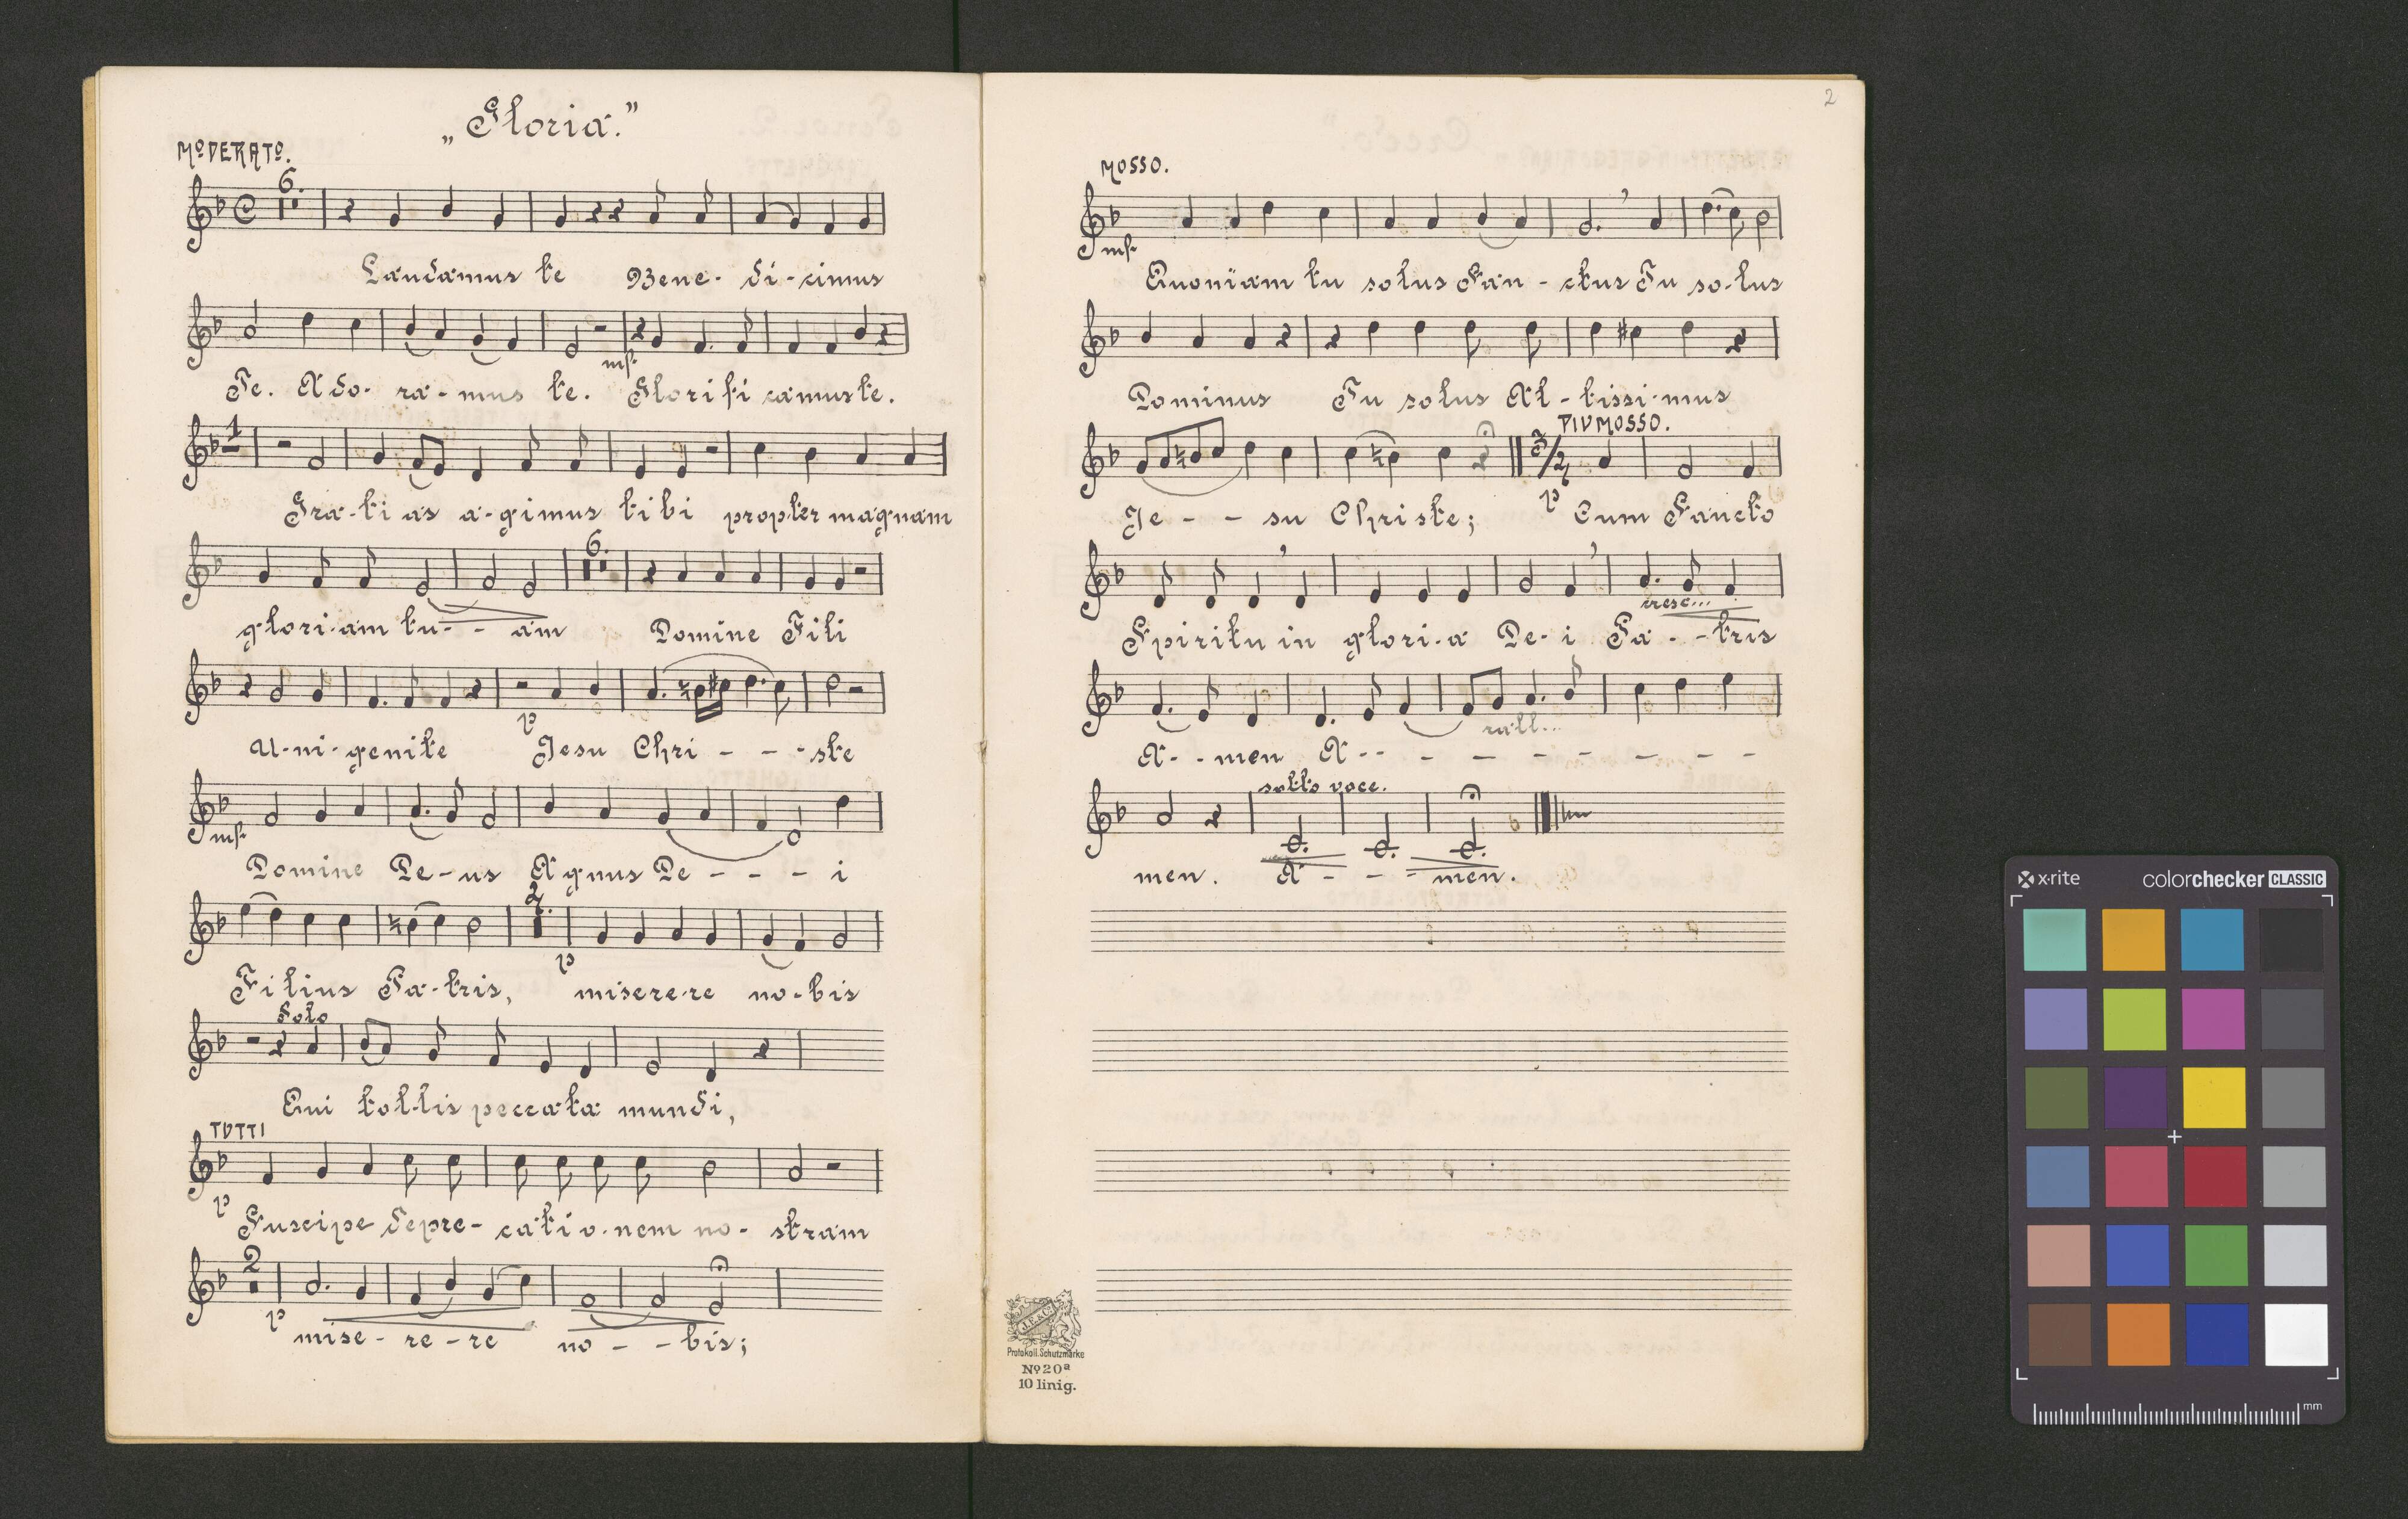 „Gloria.”
MODERATO.
6.
Laudamus te Bene- di-cimus
mf.
Te. Ado- ra-mus te. Glorifi camuste.
1
Gra-ti as a-gimus tibi propter magnam
6.
glori-am tu- - am Domine Fili
p
U-ni-genite Jesu Chri - - -ste
mf.
Domine De-us Agnus De - - - i
2.
p
Filius Pa-tris, misere-re no-bis
Solo
Qui tol-lis peccata mundi,
TUTTI
p
Suscipe depre- cati o-nem no- stram
2
p
mise- re-re no - - bis;
2
MOSSO.
mf.
Quoniam tu solus San - ctus Tu so-lus
Dominus Tu solus Al-tissi-mus
PIU MOSSO.
3/2
p
Je - - su Christe; Cum Sancto
cresc...
Spiritu in glori-a De-i Pa - -tris
rall...
A- -men A-- - - - - - - -
sotto voce.
men. A - - - men.
J.E.&Co.
Protokoll. Schutzmarke
No 20a
10 linig.
x-rite colorchecker CLASSIC
mm